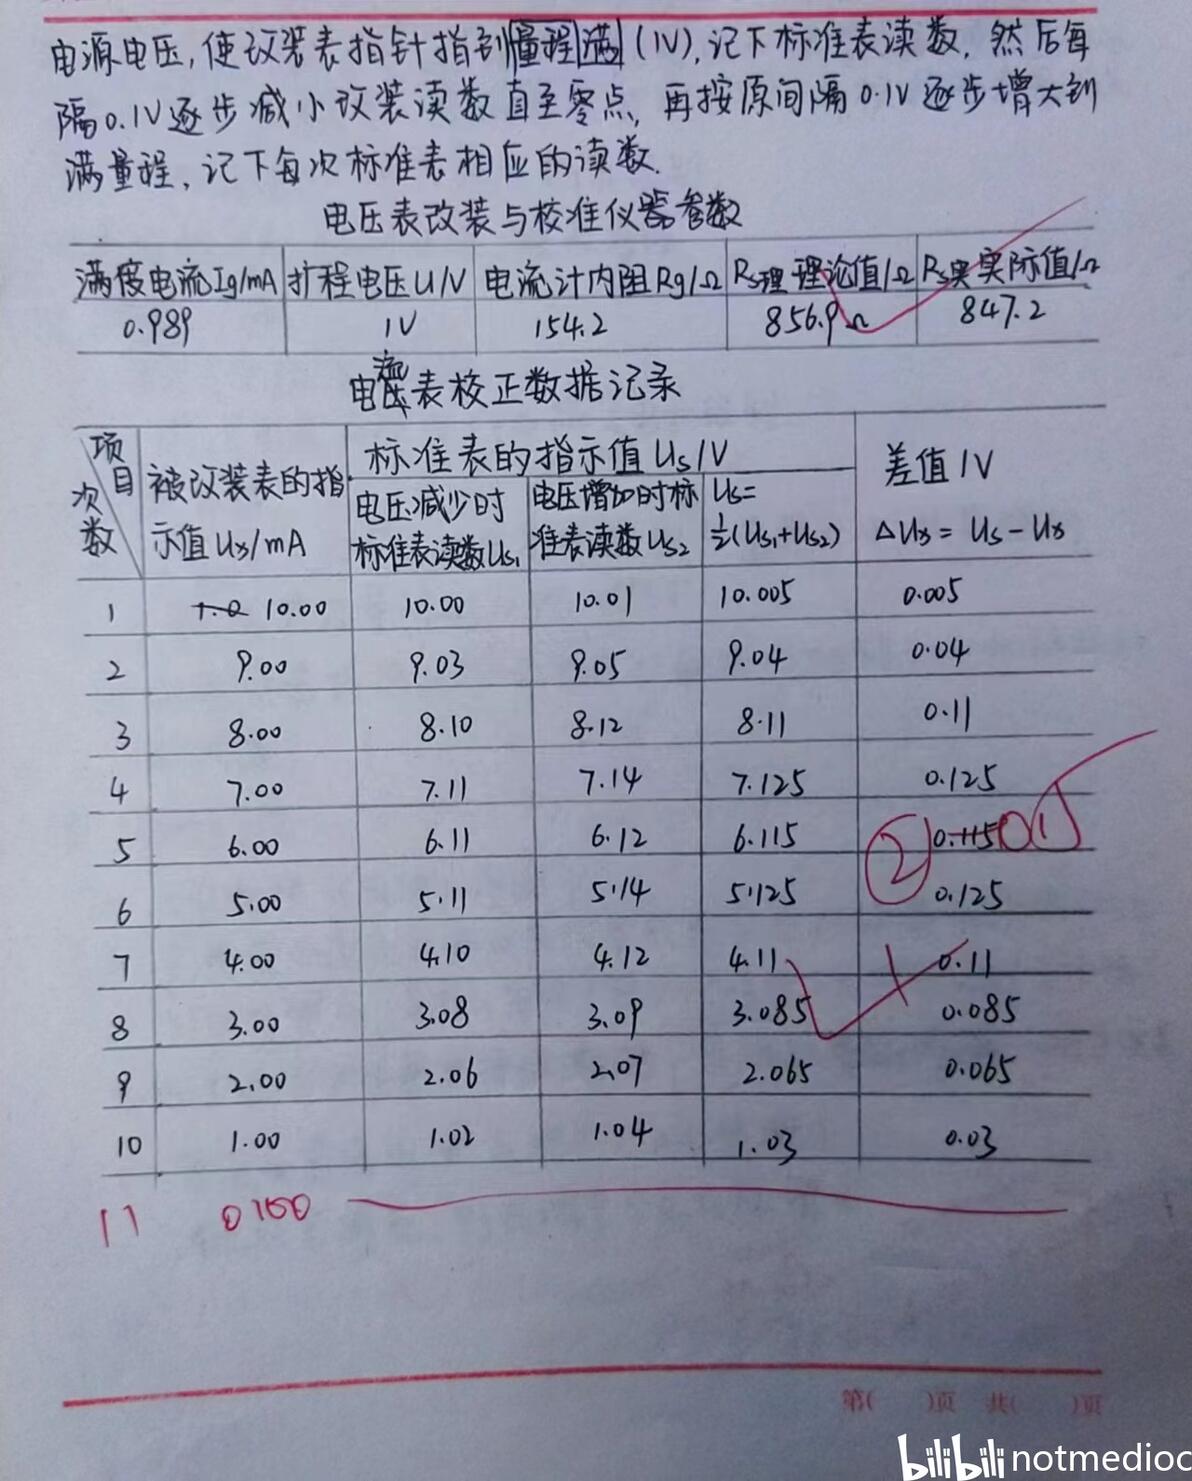 电源电压,使改装表指针指到量程满(1V),记下标准表读数.然后每
隔0.1V逐步减小改装读数直至零点,再按原间隔0.1V逐步增大到
满量程,记下每次标准表相应的读数.
电压表改装与校准仪器参数
满度电流Ig/mA 扩程电压U/V 电流计内阻Rg/Ω Rs理理论值/Ω Rs实实际值/Ω
0.989 1V 154.2 856.9Ω 847.2
电流表校正数据记录
项目 次数 被改装表的指示值Ux/mA 标准表的指示值Us/V 差值/V
电压减少时标准表读数Us1 电压增加时标准表读数Us2 Us=½(Us1+Us2) ΔUx=Us-Ux
1 1.0 10.00 10.00 10.01 10.005 0.005
2 9.00 9.03 9.05 9.04 0.04
3 8.00 8.10 8.12 8.11 0.11
4 7.00 7.11 7.14 7.125 0.125
5 6.00 6.11 6.12 6.115 0.115
6 5.00 5.11 5.14 5.125 0.125
7 4.00 4.10 4.12 4.11 0.11
8 3.00 3.08 3.09 3.085 0.085
9 2.00 2.06 2.07 2.065 0.065
10 1.00 1.02 1.04 1.03 0.03
11
第( )页 共( )页
bilibili notmedioc